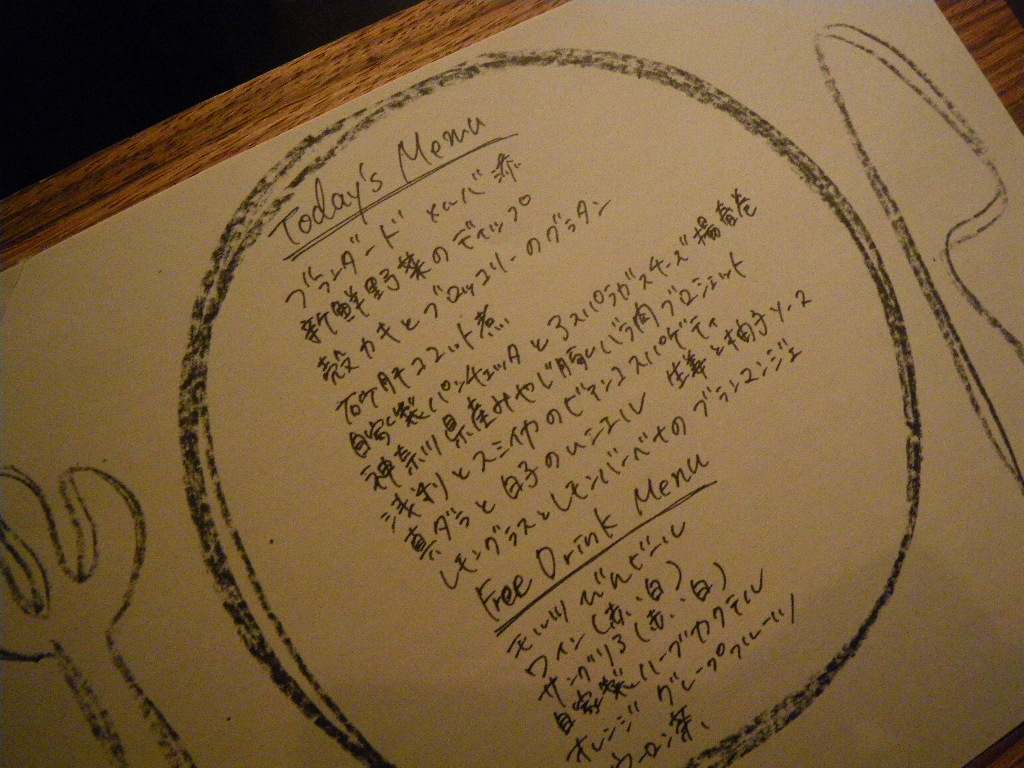 Today's Menu
ブランダード メルバ添
新鮮野菜のディップ
殻カキとブロッコリーのグラタン
砂肝ココット煮
自家製パンチェッタとアスパラガスチーズ揚春巻
神奈川県産みやじ豚バラ肉ブロシェット
浅利とスミイカのビアンコスパゲティ
真ダラと白子のムニエル 生姜と柚子ソース
レモングラスとレモンバーベナのブランマンジェ
Free Drink Menu
モルツ びんビール
ワイン(赤、白)
サングリア(赤、白)
自家製ハーブカクテル
オレンジ グレープフルーツ
ウーロン茶、